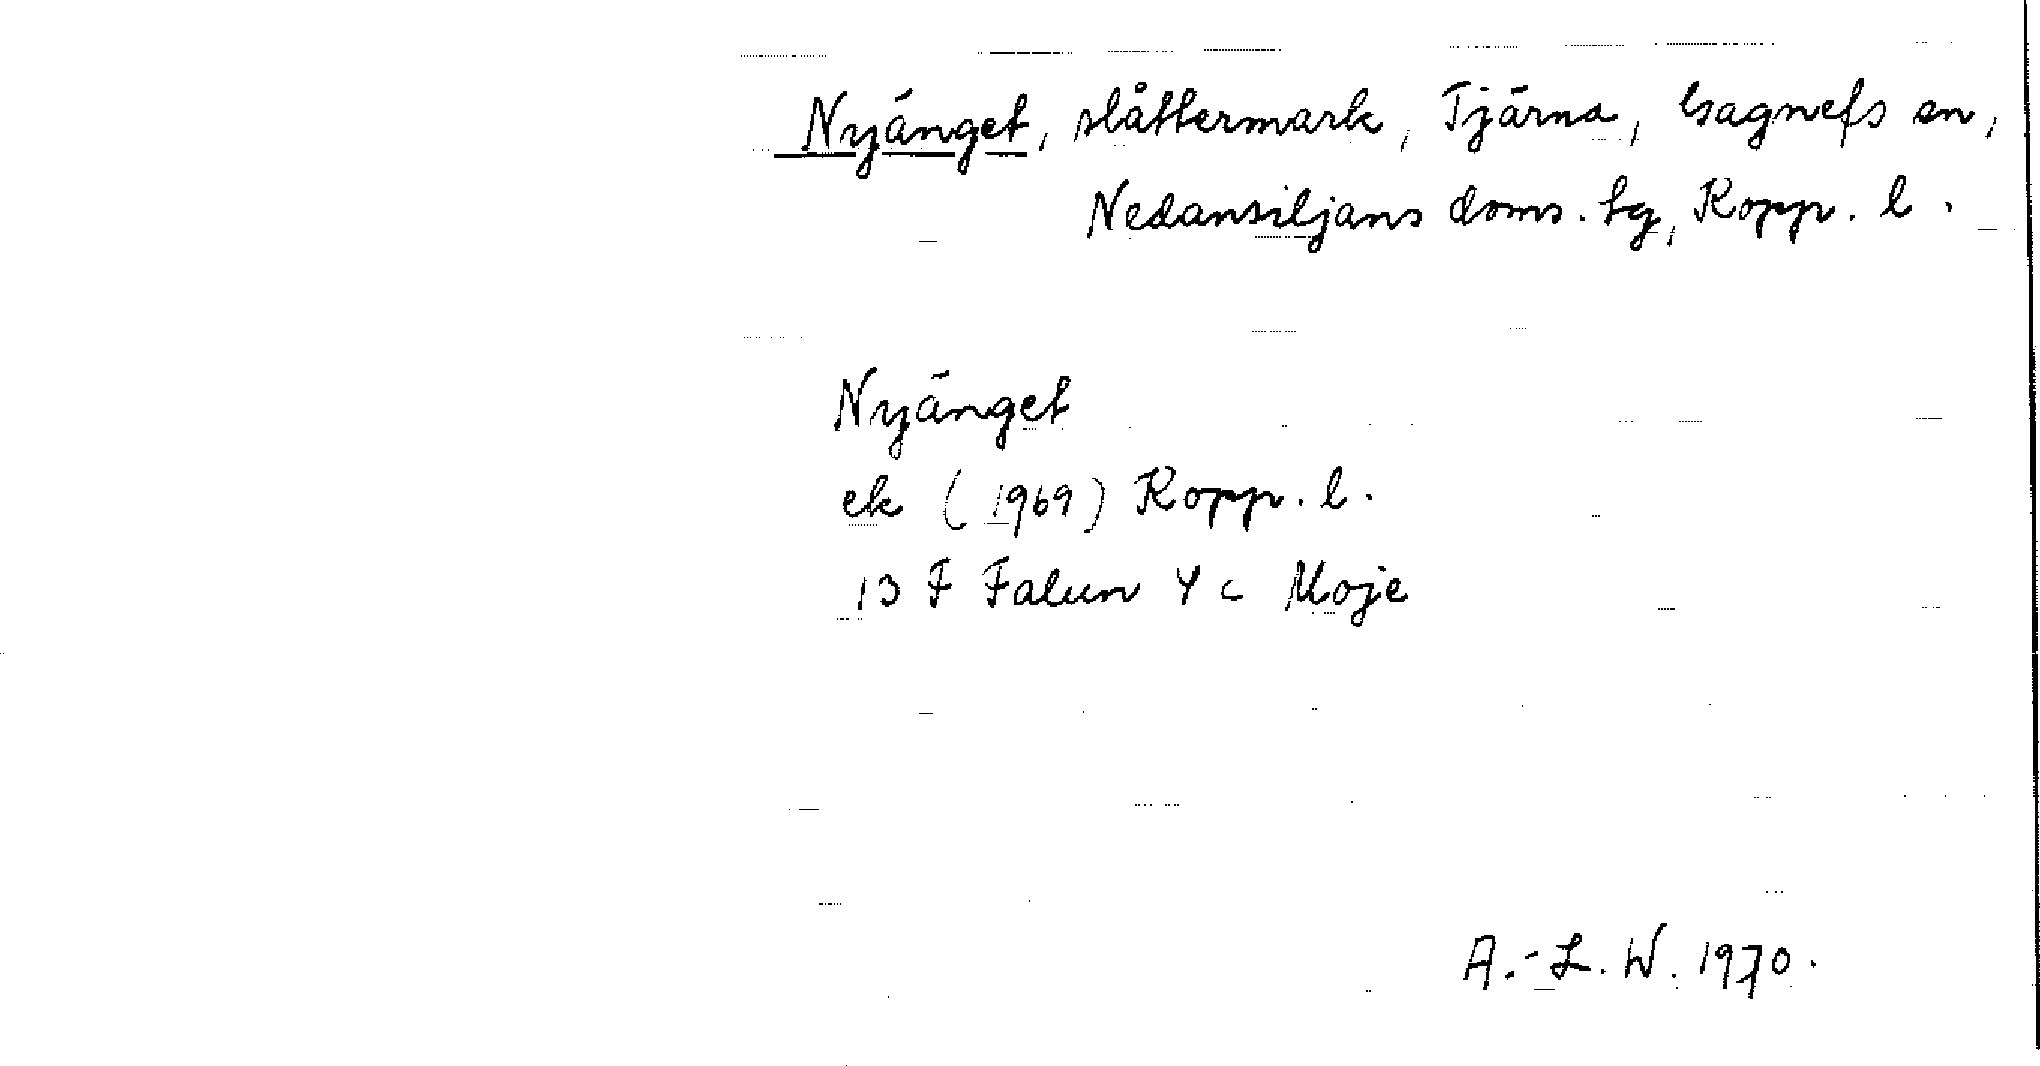 Nyänget, slåttermark, Tjärna, Gagnefs sn,
Nedansiljans doms. tg, Kopp. l.
Nyänget
ek (1969) Kopp. l.
13 F Falun 4 c Moje
A.-L. W. 1970.